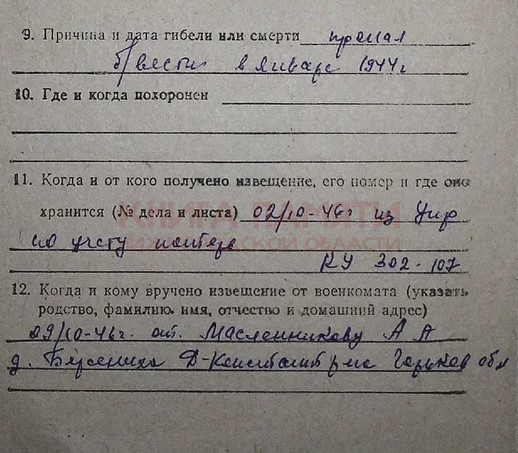 9. Причина и дата гибели или смерти пропал
б/вести в январе 1944г
10. Где и когда похоронен
11. Когда и от кого получено извещение, его номер и где оно
хранится (№ дела и листа) 02/10-46г из Упр
по учету потерь
КУ 302-107
12. Когда и кому вручено извещение от военкомата (указать
родство, фамилию, имя, отчество и домашний адрес)
29/10-46г. от. Масленникову А А
д. Берсениха Д-Константин р-на Горьков обл
КНИГА ПАМЯТИ
НИЖЕГОРОДСКОЙ ОБЛАСТИ